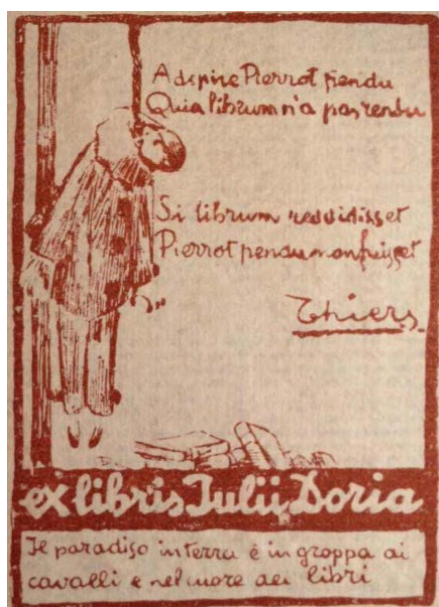 Adspice Pierrot pendu
Quia librum n'a pas rendu
Si librum reddidisset
Pierrot pendu non fuisset
Thiers
ex libris Iulii Doria
Il paradiso in terra è in groppa ai
cavalli e nel cuore dei libri